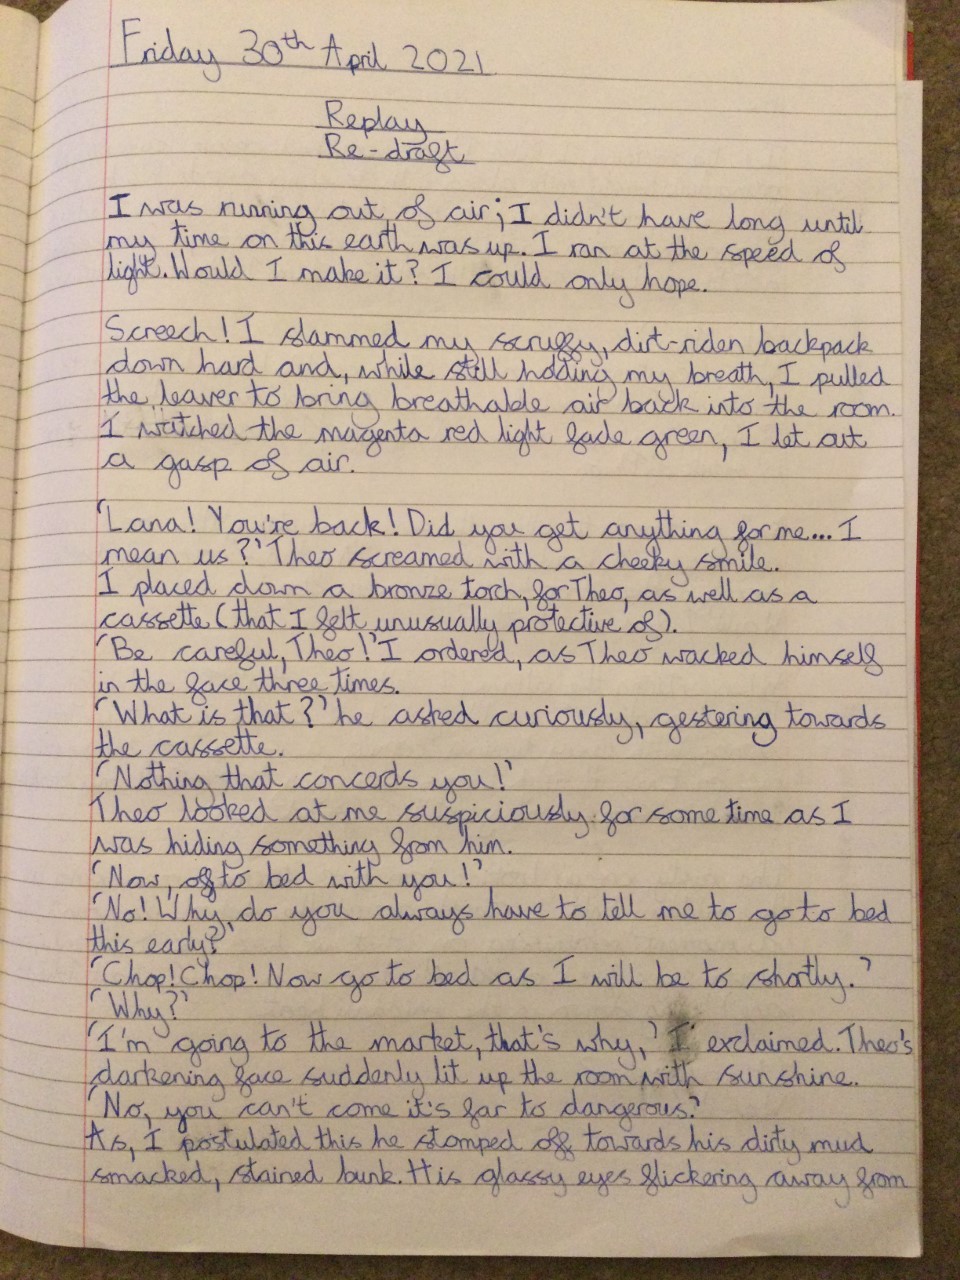 Friday 30th April 2021
Replay
Re-draft
I was running out of air; I didn't have long until
my time on this earth was up. I ran at the speed of
light. Would I make it? I could only hope.
Screech! I slammed my scruffy, dirt-riden backpack
down hard and, while still holding my breath, I pulled
the leaver to bring breathable air back into the room.
I watched the magenta red light fade green, I let out
a gasp of air.
'Lana! You're back! Did you get anything for me... I
mean us?' Theo screamed with a cheeky smile.
I placed down a bronze torch, for Theo, as well as a
cassette (that I felt unusually protective of).
'Be careful, Theo!' I ordered, as Theo wacked himself
in the face three times.
'What is that?' he asked curiously, gestering towards
the cassette.
'Nothing that concerds you!'
Theo looked at me suspiciously for some time as I
was hiding something from him.
'Now, off to bed with you!'
'No! Why do you always have to tell me to go to bed
this early?'
'Chop! Chop! Now go to bed as I will be to shortly.'
'Why?'
'I'm going to the market, that's why,' I exclaimed. Theo's
darkening face suddenly lit up the room with sunshine.
'No, you can't come it's far to dangerous.'
As, I postulated this he stomped off towards his dirty mud
smacked, stained bunk. His glassy eyes flickering away from